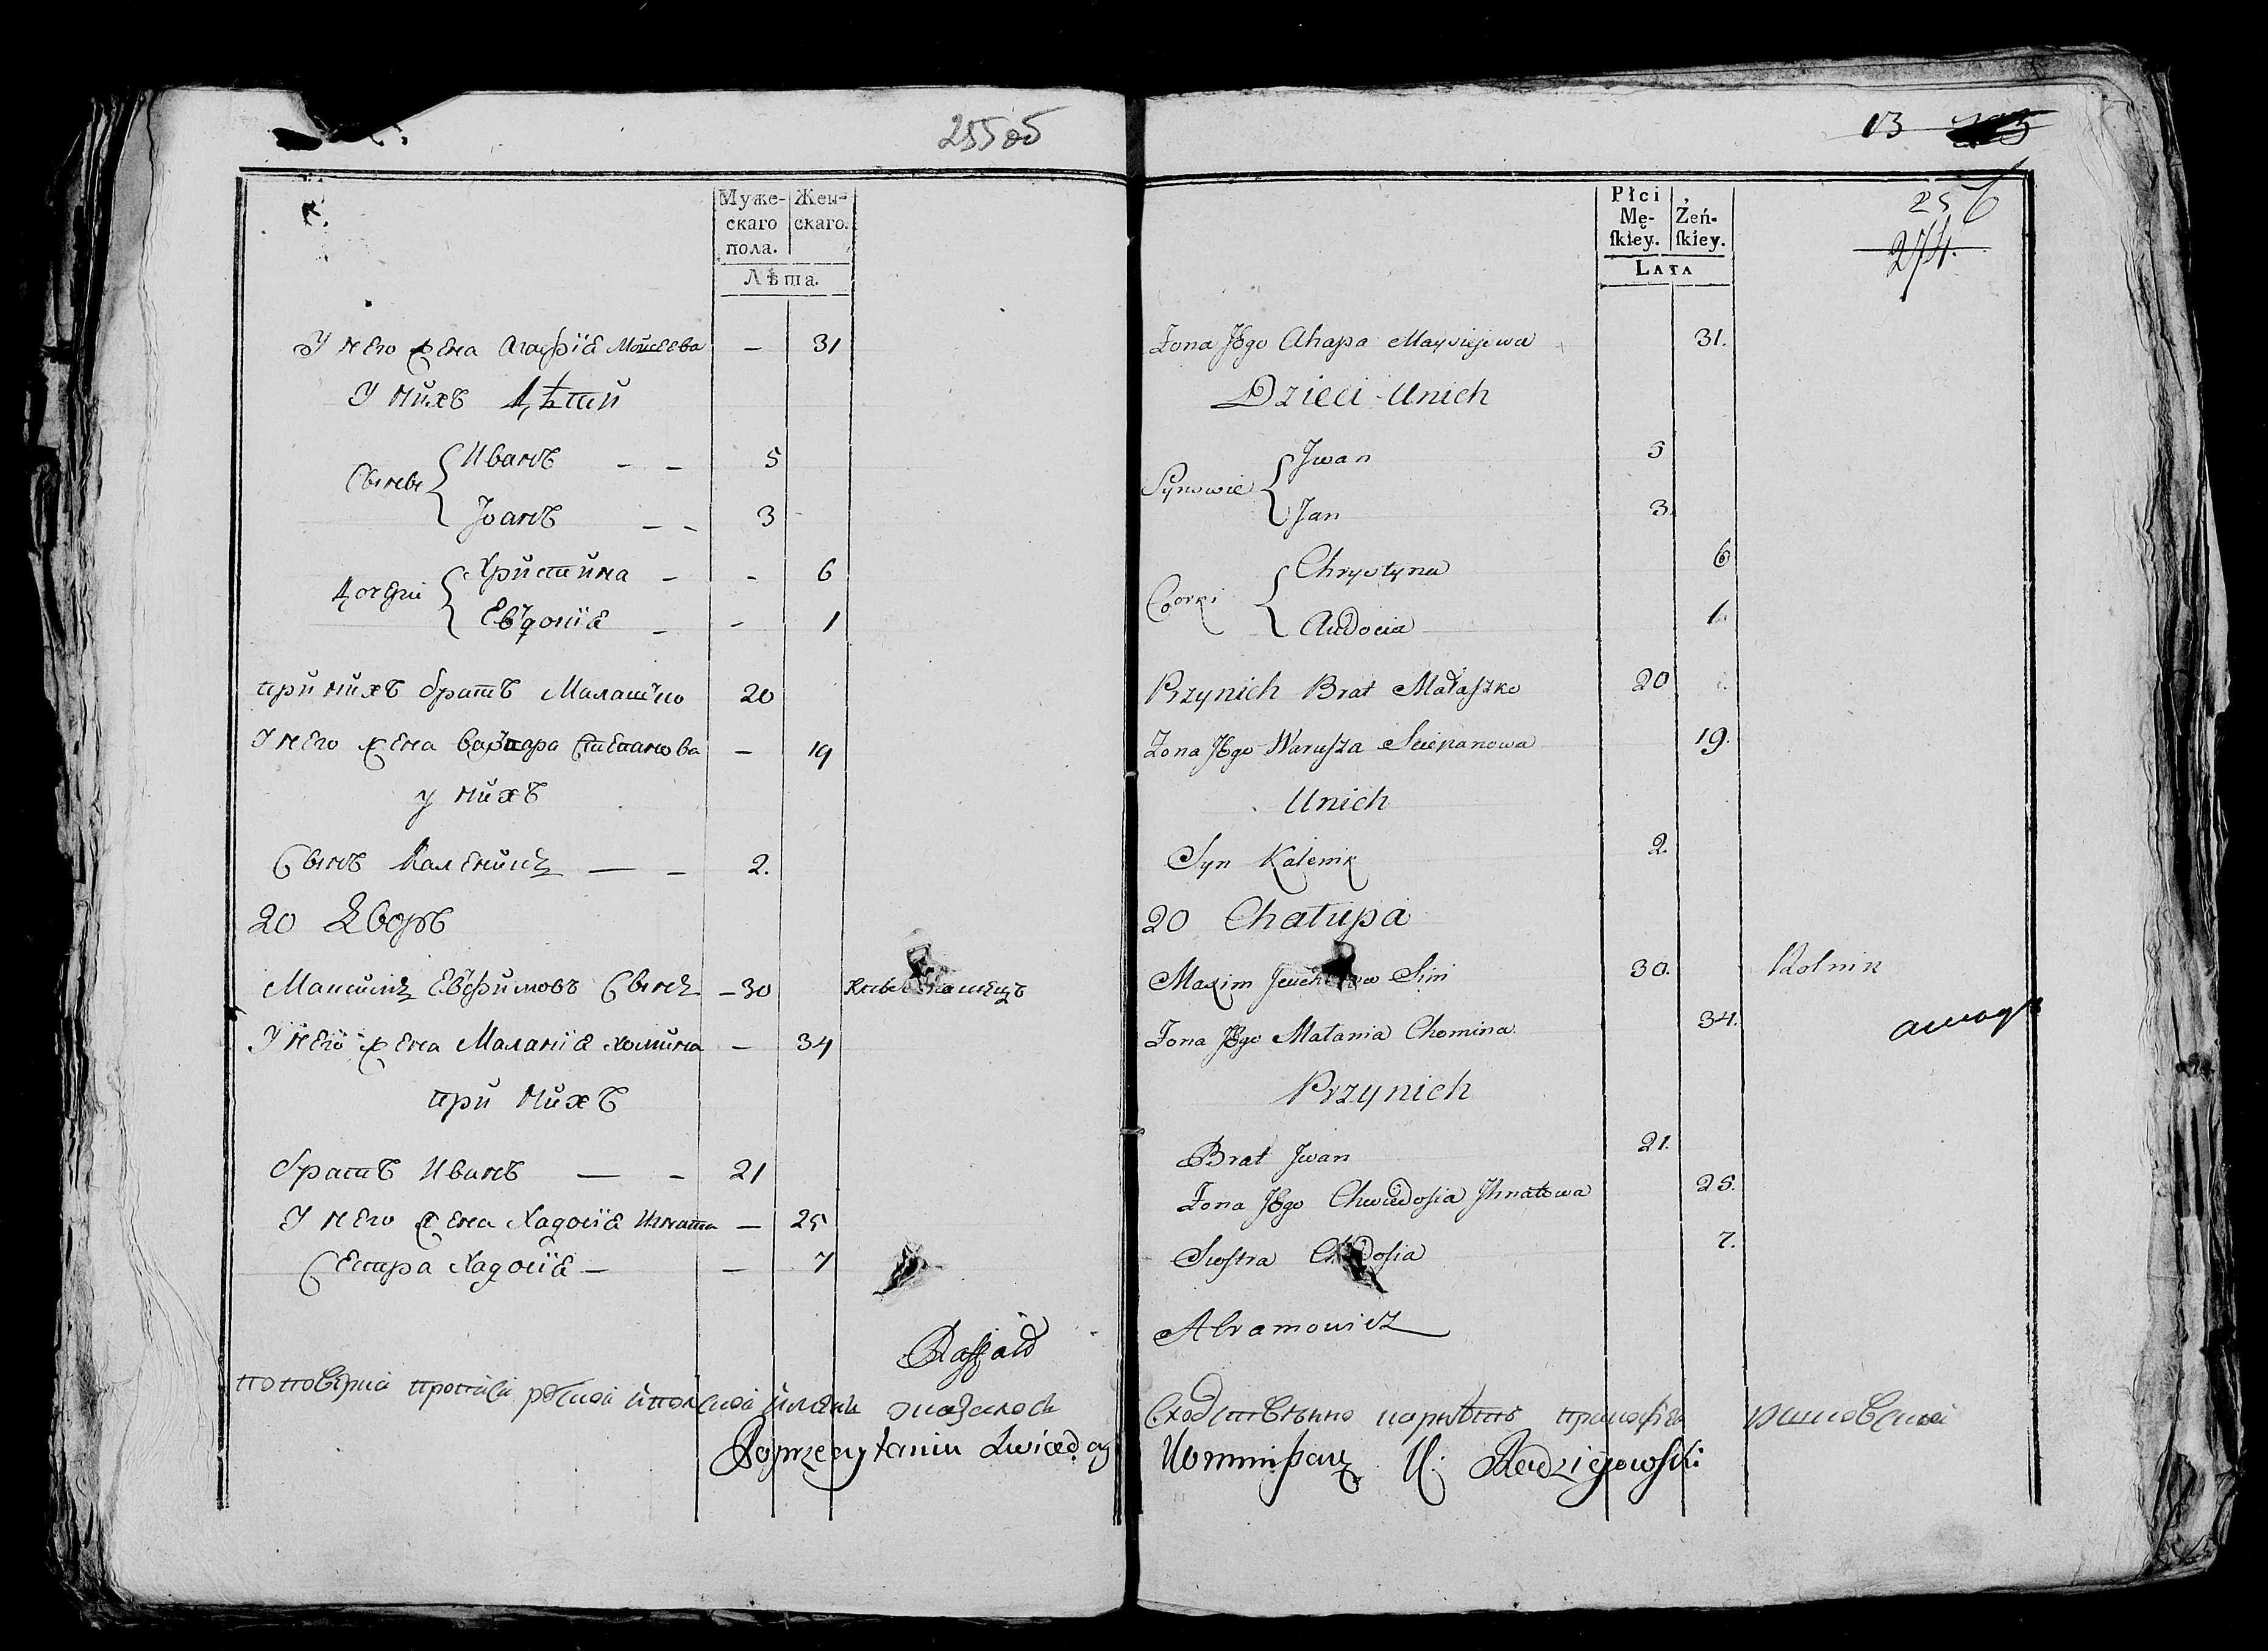 255 об
Муже-
скаго
пола.
Жен-
скаго.
Лѣта.
У него жена Агафіа Моисеева — 31
У нихъ Дѣти
Сыны
Иванъ — — 5
Іоанъ — — 3
Дочери
Христина — - 6
Евдокіа — - 1
при нихъ братъ Малашко 20
У него жена Варвара Степанова — 19
у нихъ
Сынъ Каленикъ — — 2.
20 Дворъ
Максимъ Евфимовъ Сынъ — 30
У него жена Маланіа Хомина — 34
при нихъ
братъ Иванъ — — 21
У него жена Хадосіа Игната — 25
Сестра Хадосіа — — 7
по поверки
оказалось
Poprzeczytaniu
13
256
274.
Płci
Mę-
ſkiey.
Żeń-
ſkiey.
Lata
Żona Jego Ahapa 31.
Dzieci Unich
Synowie
Jwan 5
Jan 3.
Corki
Chrystyna 6
Audocia 1.
Przynich Brat Małaszko 20
Żona Jego Warusza Sciepanowa 19.
Unich
Syn Kalenik 2.
20 Chałupa
Maxim 30. Rolnik
Żona Jego Małania Chomina 34.
Przynich
Brat Jwan 21.
Żona Jego Chwiedosia Jhnatowa 25.
Siostra 7.
Abramowicz
Kommissarz